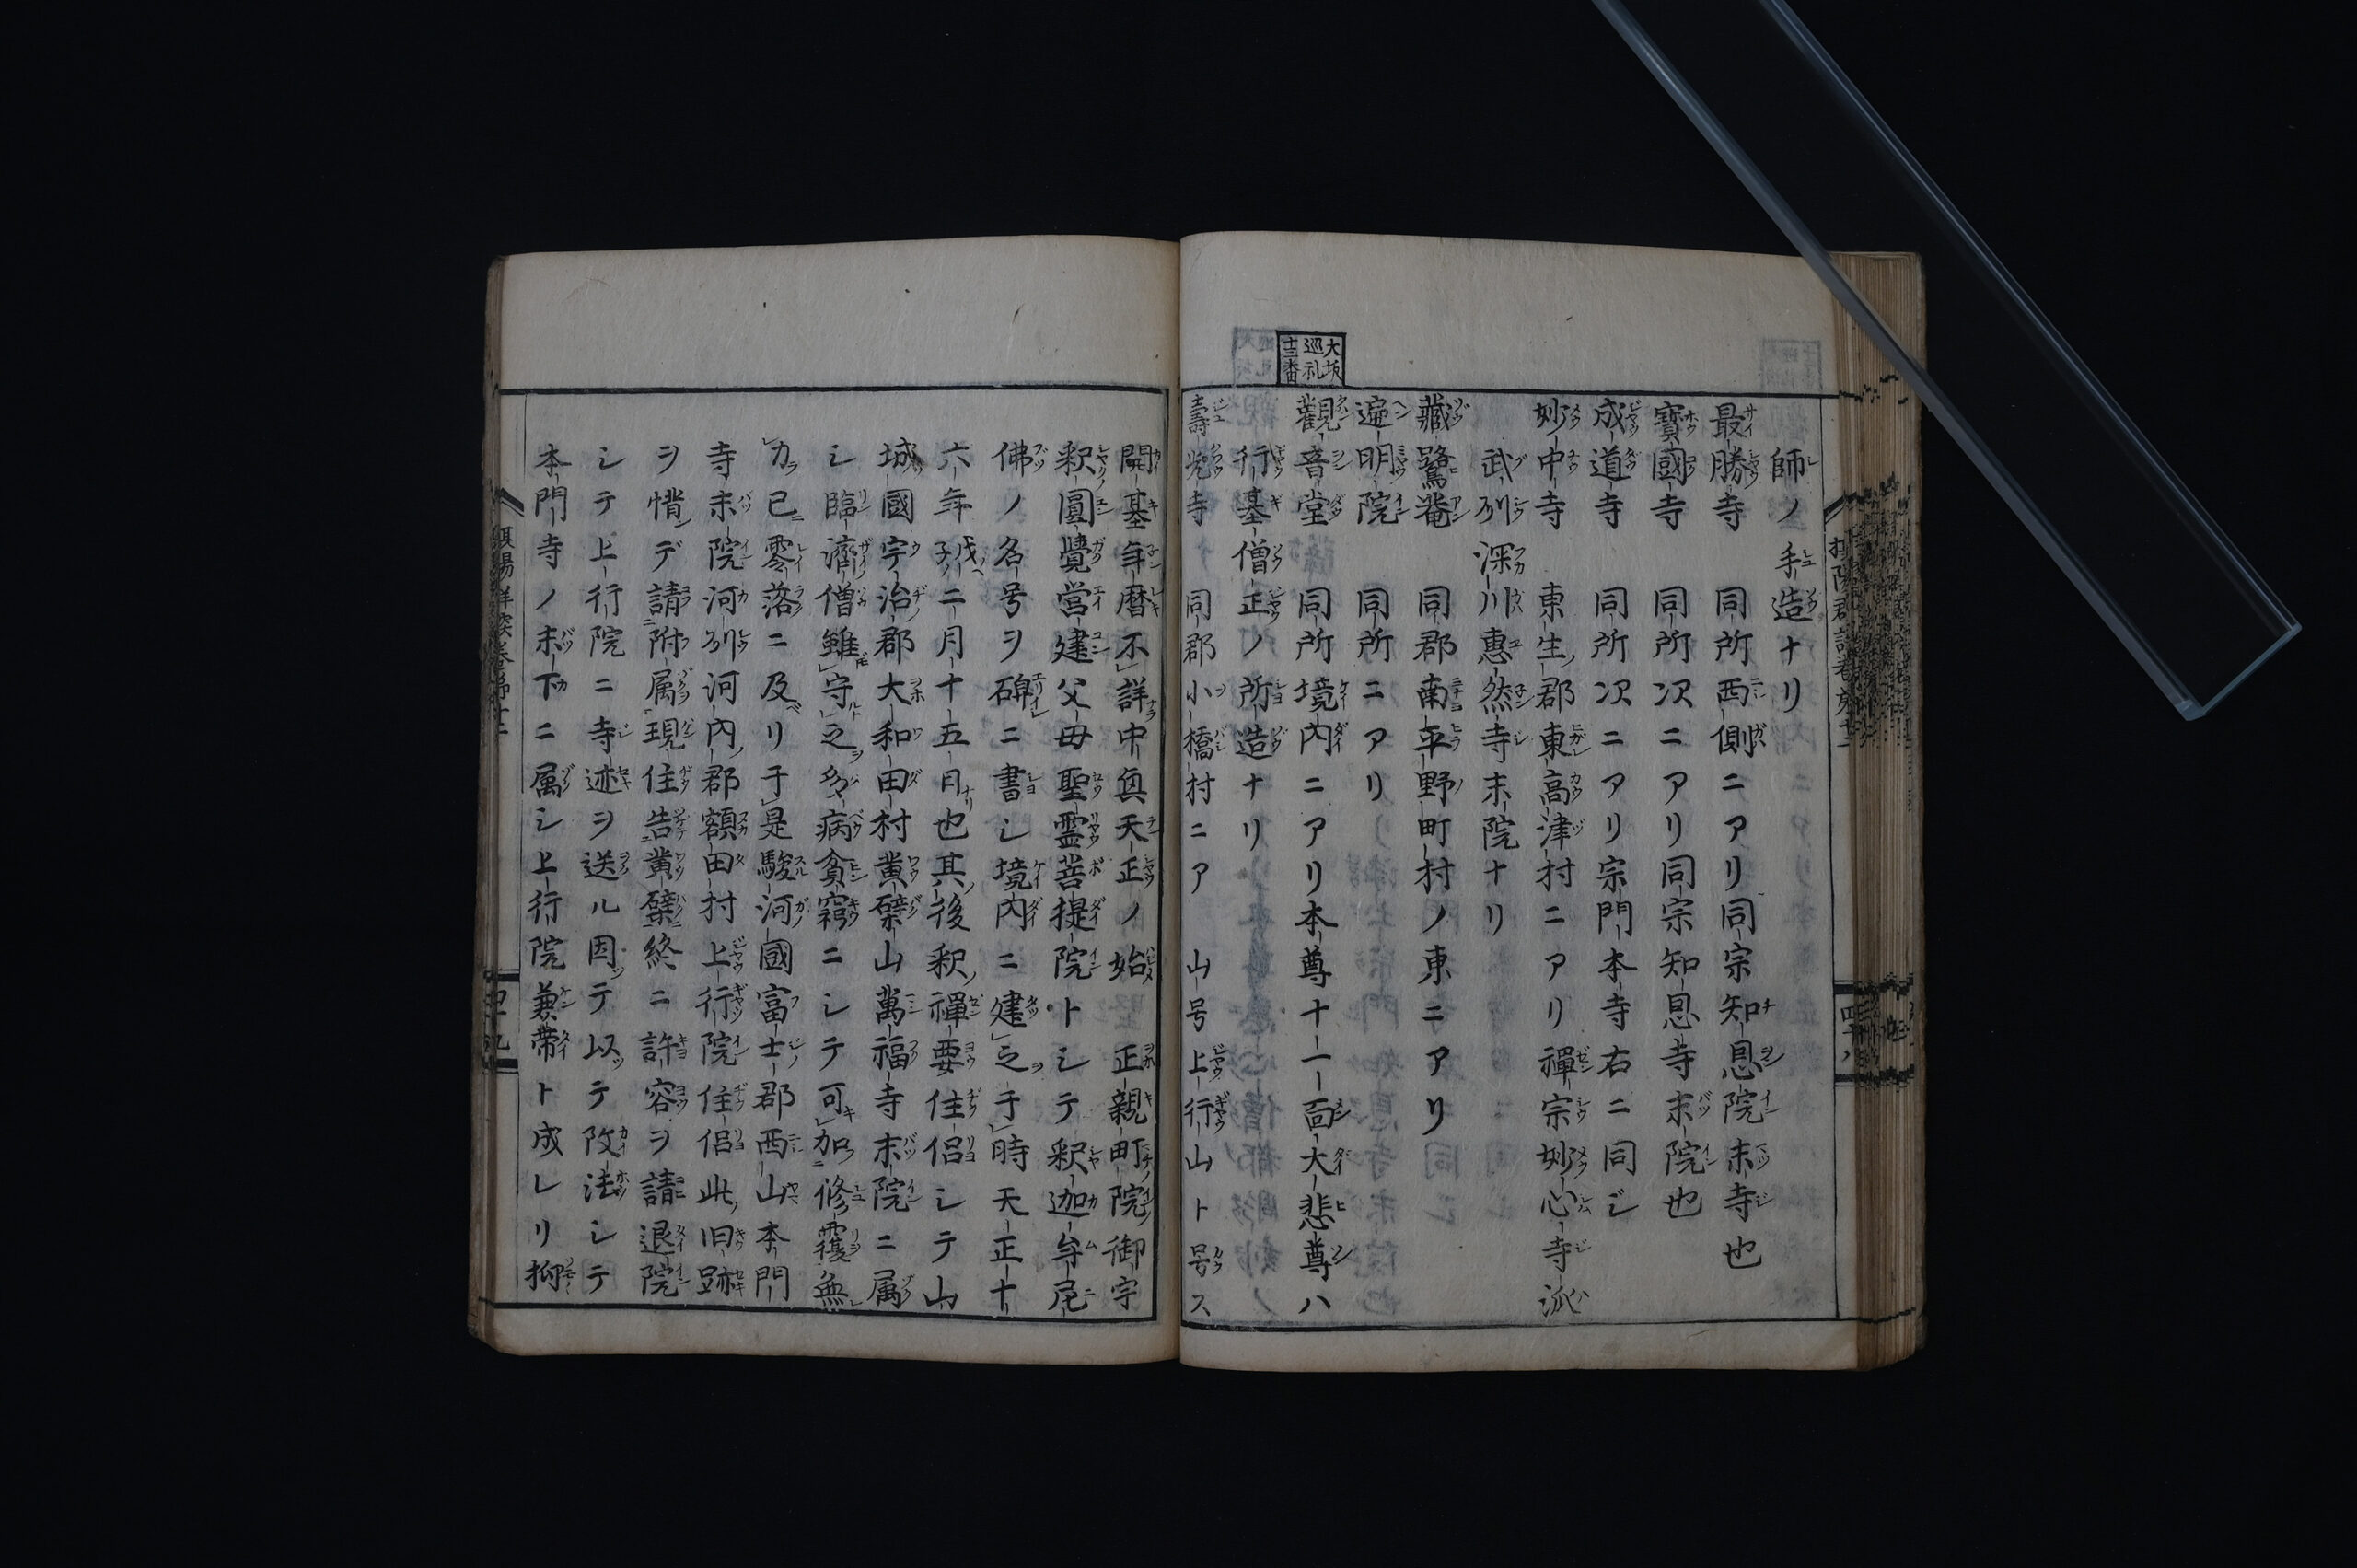 師ノ手造ナリ
最勝寺 同所西側ニアリ同宗知恩院末寺也
寳國寺 同所次ニアリ同宗知恩寺末院也
成道寺 同所次ニアリ宗門本寺右ニ同ジ
妙中寺 東生郡東高津村ニアリ禪宗妙心寺派
武刕深川惠然寺末院ナリ
藏鷺菴 同郡南平野町村ノ東ニアリ
遍明院 同所ニアリ
大坂巡礼十三番
觀音堂 同所境内ニアリ本尊十一面大悲尊ハ
行基僧正ノ所造ナリ
壽光寺 同郡小橋村ニア 山号上行山ト号ス
開基年暦不詳中奥天正ノ始正親町院御宇
釈圓覺営建父母聖霊菩提院トシテ釈迦牟尼
佛ノ名号ヲ碑ニ書シ境内ニ建之于時天正十
六年戊子二月十五日也其後釈禪要住侶シテ山
城國宇治郡大和田村黄檗山萬福寺末院ニ属
シ臨濟僧雖守之多病貧窮ニシテ可加修覆無
力已零落ニ及リ于是駿河國富士郡西山本門
寺末院河刕河内郡額田村上行院住侶此旧跡
ヲ惜デ請附属現住告黄檗終ニ許容ヲ請退院
シテ上行院ニ寺迹ヲ送ル因テ以テ改法シテ
本門寺ノ末下ニ属シ上行院兼帯ト成レリ抑